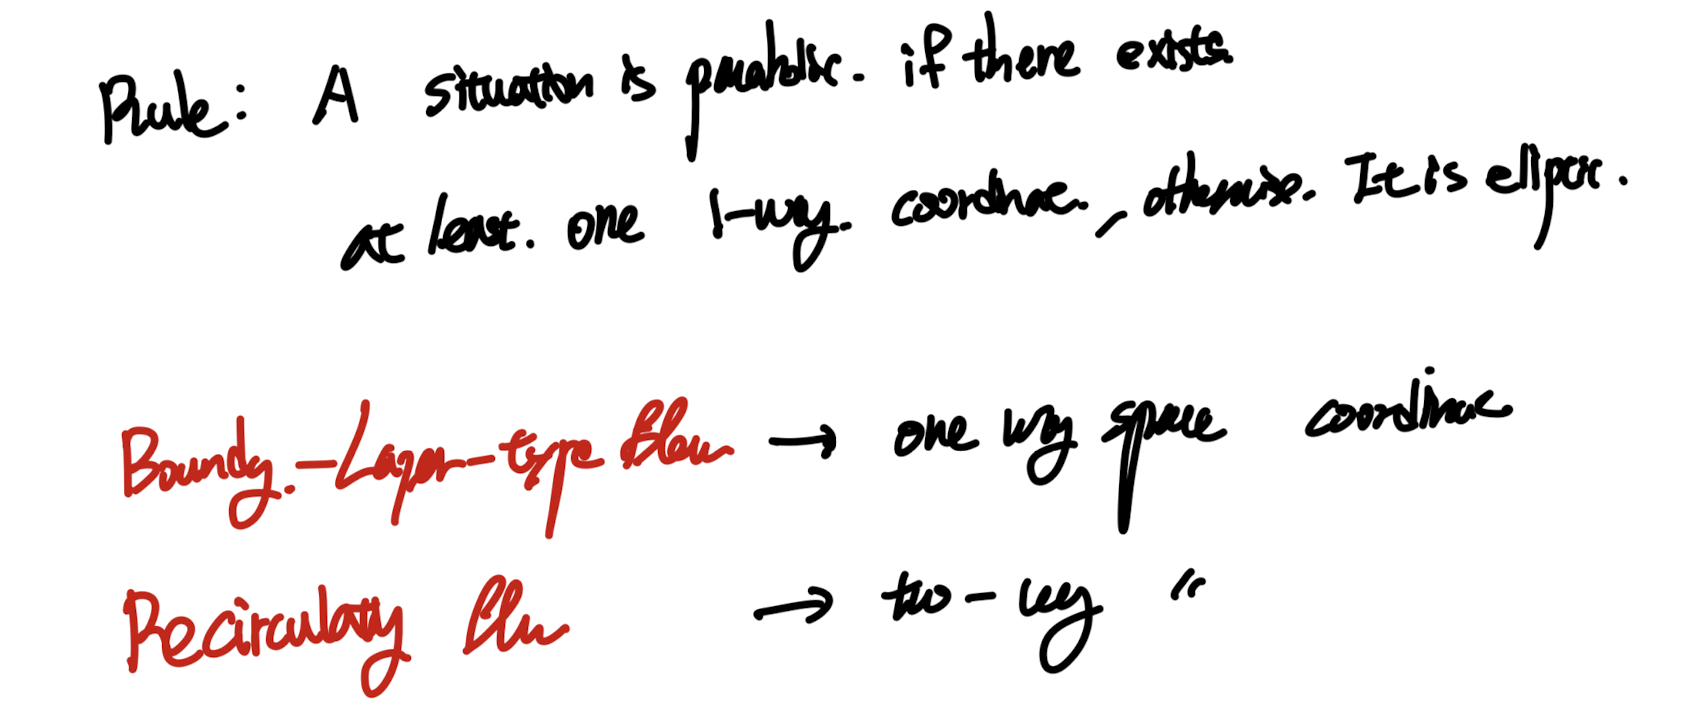 Rule: A situation is parabolic. if there exists
at least. one 1-way. coordinate., otherwise. It is elliptic.
Boundy.-Layer-type flow → one way space coordinate
Recirculaty flow → two-way "